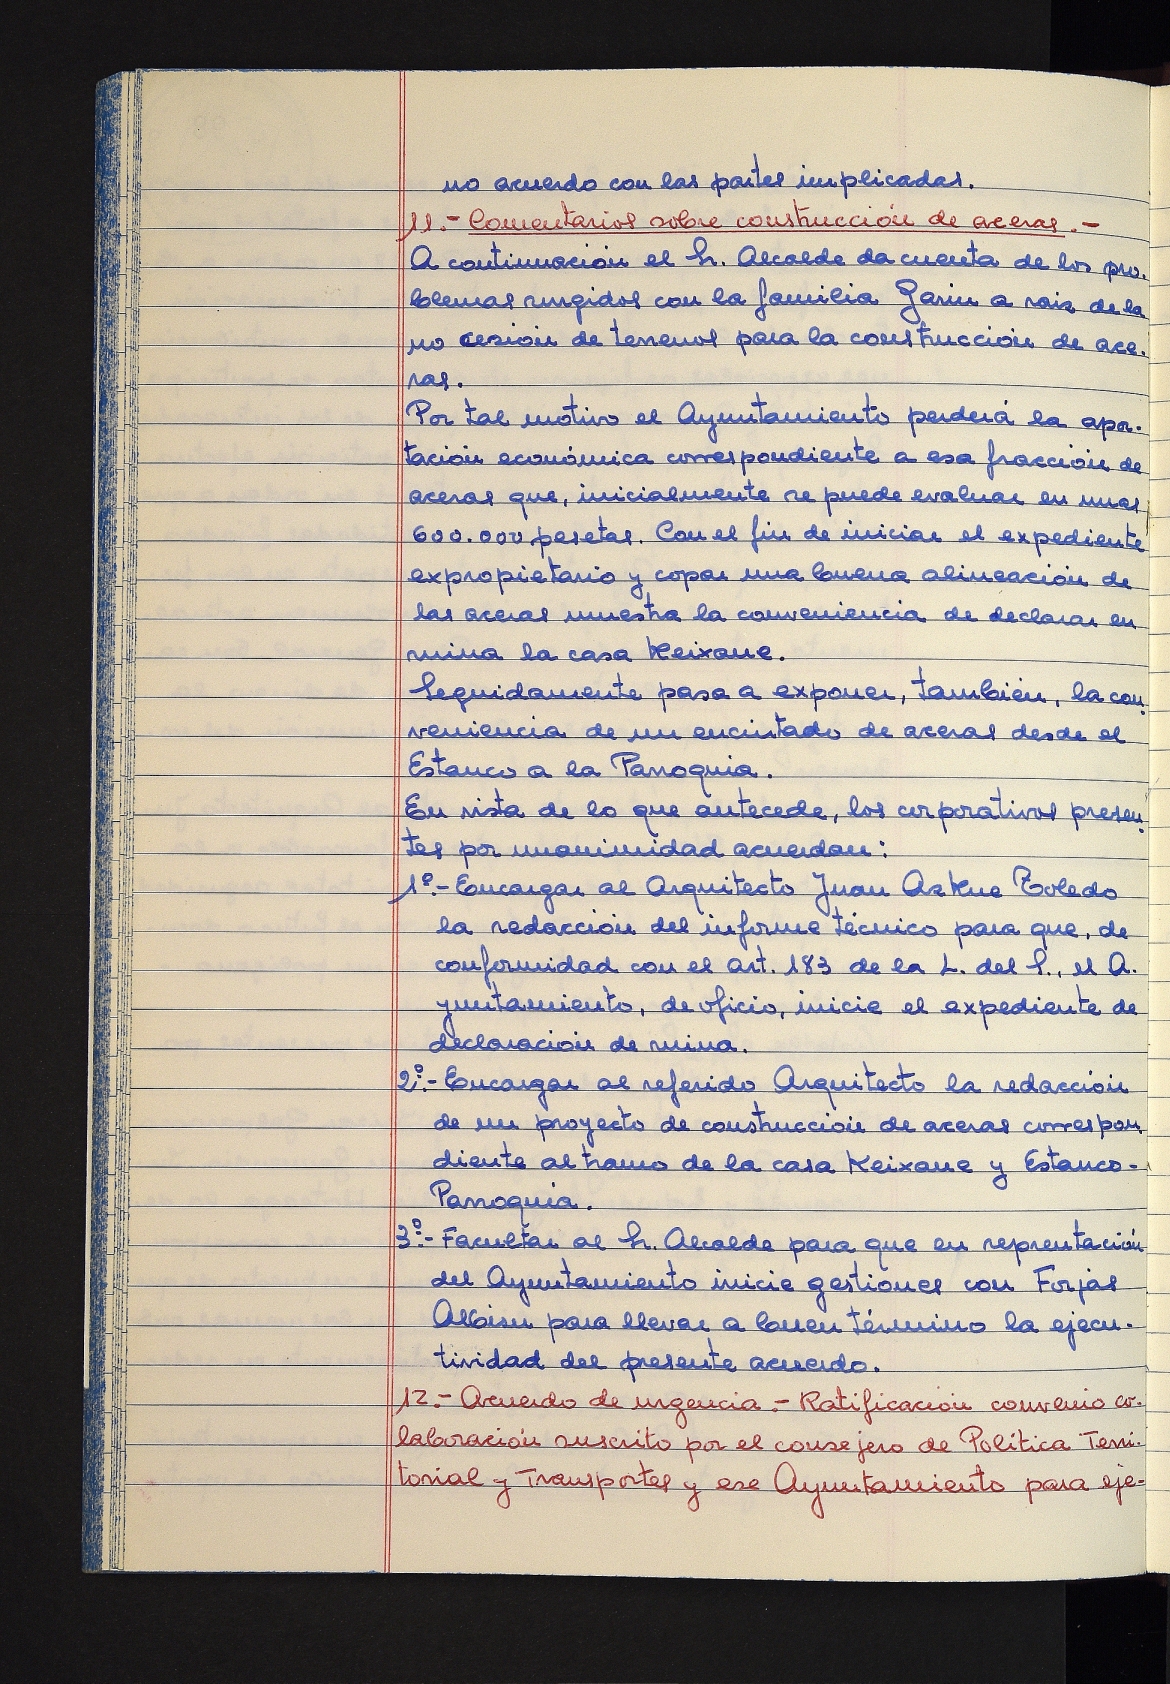 no acuerdo con las partes implicadas.
11.- Comentarios sobre construcción de aceras.-
A continuación el Sr. Alcalde da cuenta de los pro-
blemas surgidos con la familia Garin a raiz de la
no cesión de terrenos para la construcción de ace-
ras.
Por tal motivo el Ayuntamiento perderá la apor-
tación económica correspondiente a esa fracción de
aceras que, inicialmente se puede evaluar en unas
600.000 pesetas. Con el fin de iniciar el expediente
expropietario y copar una buena alineación de
las aceras muestra la conveniencia de declarar en
ruina la casa Keixane.
Seguidamente pasa a exponer, también, la con-
veniencia de un encintado de aceras desde el
Estanco a la Parroquia.
En vista de lo que antecede, los corporativos presen-
tes por unanimidad acuerdan:
1º.- Encargar al Arquitecto Juan Azkue Toledo
la redacción del informe técnico para que, de
conformidad con el art. 183 de la L. del S., el A-
yuntamiento, de oficio, inicie el expediente de
declaración de ruina.
2º.- Encargar al referido Arquitecto la redacción
de un proyecto de construcción de aceras correspon-
diente al tramo de la casa Keixane y Estanco-
Parroquia.
3º.- Facultar al Sr. Alcalde para que en reprentación
del Ayuntamiento inicie gestiones con Forjas
Albisu para llevar a buen término la ejecu-
tividad del presente acuerdo.
12.- Acuerdo de urgencia.- Ratificación convenio co-
laboración suscrito por el consejero de Política Terri-
torial y Transportes y ese Ayuntamiento para eje-